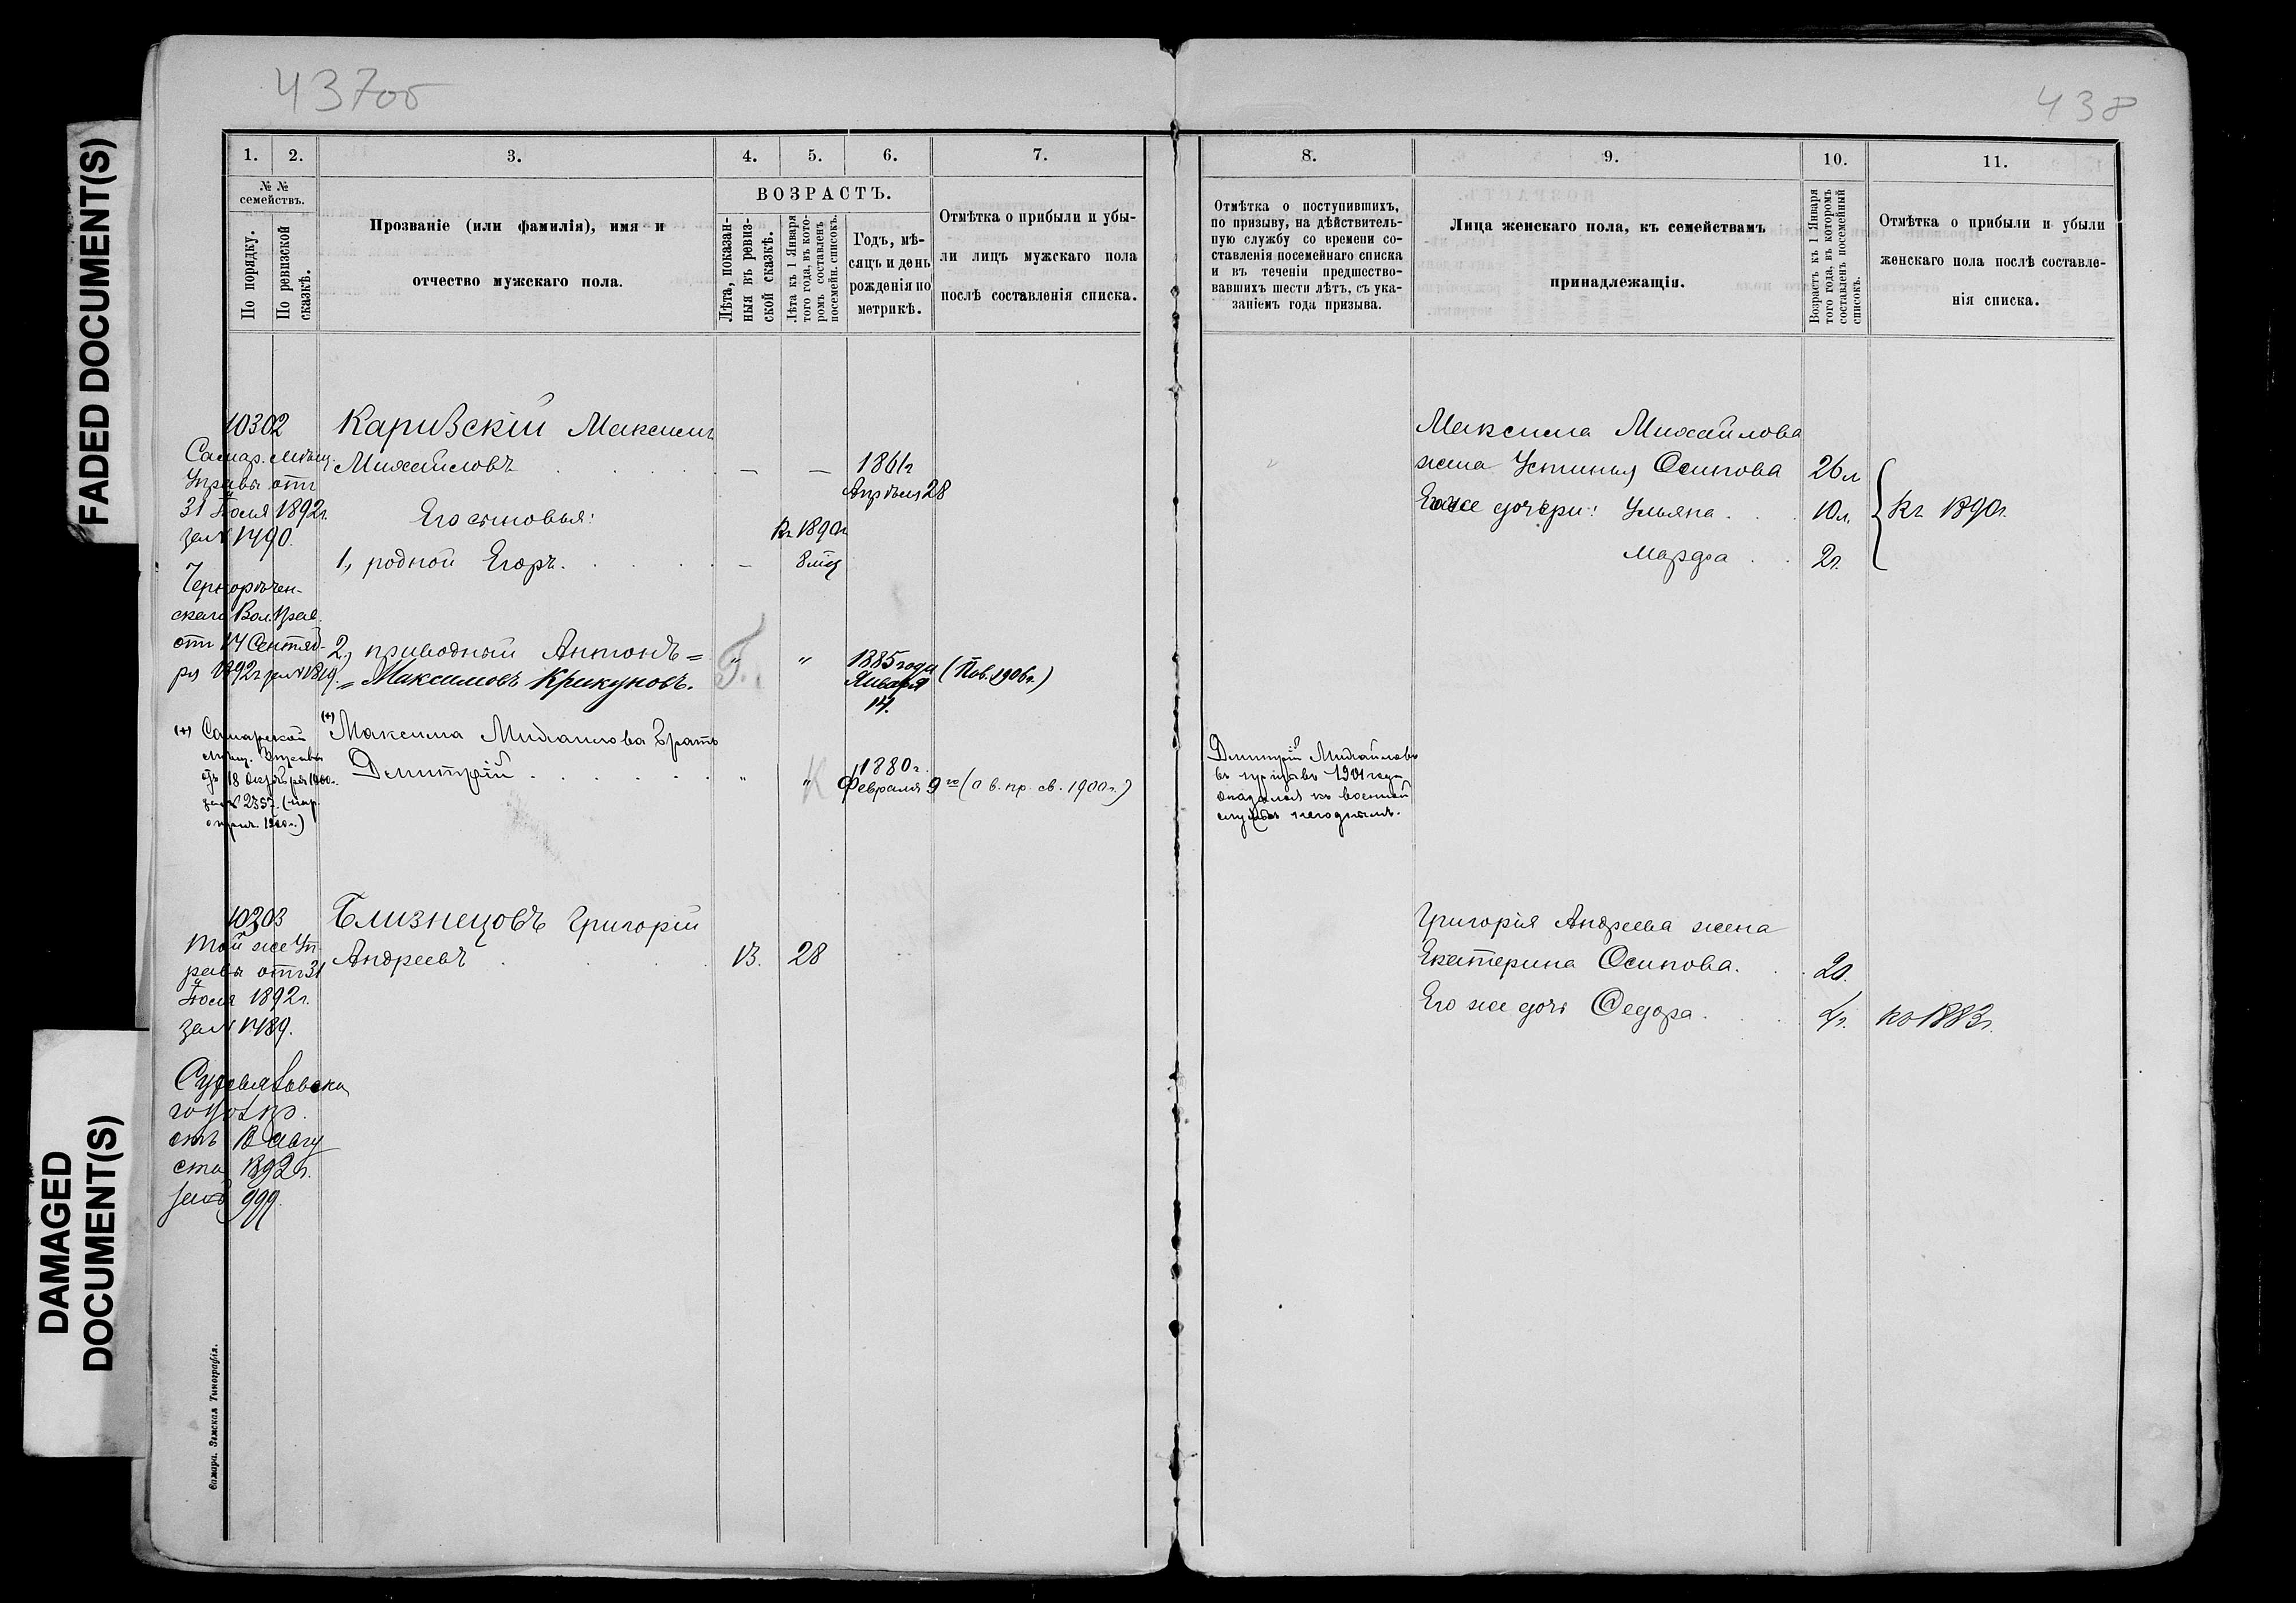 437об
438
FADED DOCUMENT(S)
DAMAGED
DOCUMENT(S)
1.
2.
3.
4.
5.
6.
7.
№ №
семействъ.
По порядку.
По ревизской
сказкѣ.
Прозваніе (или фамилія), имя и
отчество мужскаго пола.
ВОЗРАСТЪ.
Лѣта, показан-
ныя въ ревиз-
ской сказкѣ.
Лѣта къ 1 Января
того года, въ кото-
ромъ составленъ
посемейн. списокъ.
Годъ, мѣ-
сяцъ и день
рожденія по
метрикѣ.
Отмѣтка о прибыли и убы-
ли лицъ мужскаго пола
послѣ составленія списка.
8.
9.
10.
11.
Отмѣтка о поступившихъ,
по призыву, на дѣйствитель-
ную службу со времени со-
ставленія посемейнаго списка
и въ теченіи предшество-
вавшихъ шести лѣтъ, съ ука-
заніемъ года призыва.
Лица женскаго пола, къ семействамъ
принадлежащія.
Возрастъ къ 1 Января
того года, въ которомъ
составленъ посемейный
списокъ.
Отмѣтка о прибыли и убыли
женскаго пола послѣ составле-
нія списка.
10302
Самар. Мѣщ.
Управы отъ
31 Іюля 1892г.
за № 1490.
Чернорѣчен-
скаго Вол. Прав.
отъ 14 Сентяб-
ря 1892г за № 1819.
Каривскій Максимъ
Михайловъ — — 1861г
Апрѣля 28
Его сыновья:
Къ 1890г
1, родной Егоръ. — 8 мѣс
2, приводный Антонъ = " " 1885 года (Пов. 1906г.)
= Максимовъ Крикуновъ. Января
14.
(+) Самарской
Мѣщ. Управы
отъ 18 Октября 1900г.
за № 2357.
(+) Максима Михайлова братъ
Дмитрій " " 1880г.
Февраля 9го (о в. пр. св. 1900г.)
Дмитрій Михайловъ
въ призывъ 1901 года
оказался къ военной
службѣ негоднымъ.
Максима Михайлова
жена Устинья Осипова 26л
Его же дочери: Ульяна 10л. Къ 1890г.
Марфа 2г.
10303
Той же Уп-
равы отъ 31
Іюля 1892г.
за № 1489.
отъ 18 Авгу
ста 1892г.
за № 999.
Близнецовъ Григорій
Андреевъ 13. 28
Григорія Андреева жена
Екатерина Осипова. 20.
Его же дочь Федора. 4г. къ 1883г.
Самара. Земская Типографія.